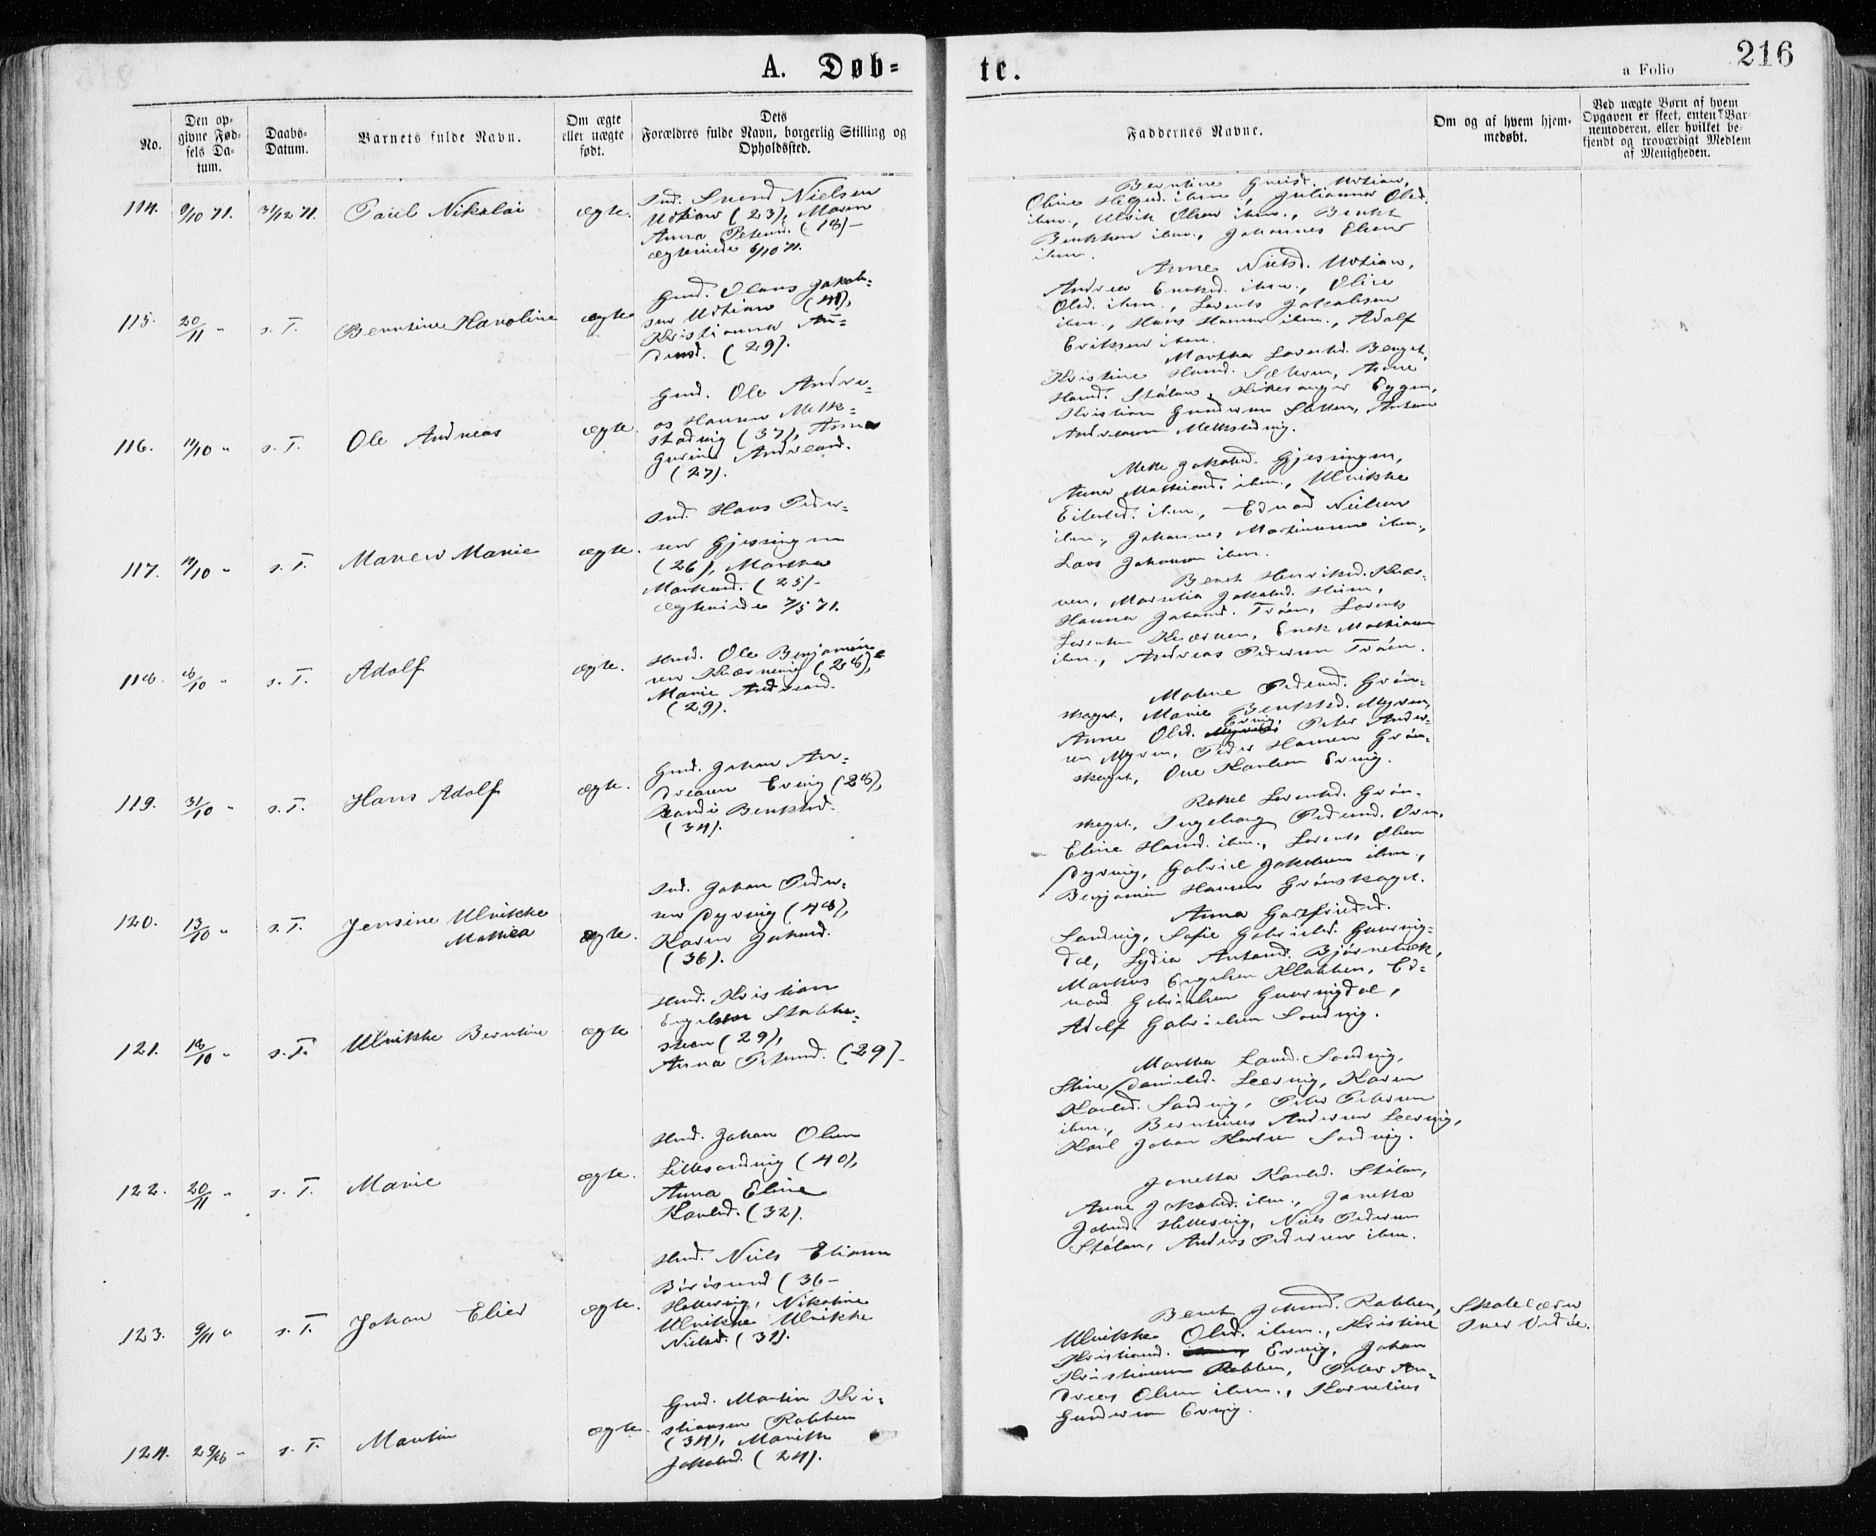 216
A. Døb= te.
a Folio
No.
Den op-
givne Fød-
sels Da-
tum.
Daabs-
Datum.
Barnets fulde Navn.
Om ægte
eller uægte
født.
Dets
Forældres fulde Navn, borgerlig Stilling og
Opholdssted.
Faddernes Navne.
Om og af hvem hjem-
medøbt.
Ved uægte Børn af hvem
Opgaven er skeet, enten Bar-
nemoderen, eller hvilket be-
kjendt og troværdigt Medlem
af Menigheden.
114. 9/10 71. 31/12 71. Paul Nikolai ægte.
Ind. Svend Nielsen
Udtian (23), Maren
Anna Petersd. (18)-
ægteviede 6/10 71.
Oline ibm., Julianna Olsd.
ibm., Ulrik Olsen ibm., Benkt
Benktsen ibm., Johannes Elsen
ibm.
115. 20/11 " s. T. Berntine Havoline ægte
Gmd. Olaus Jakob=
sen Udtian (41),
Kristianna An=
dersd. (29).
Anne Nielsd. Udtian,
ibm., Oline
Olsd. ibm., Lorents Jakobsen
ibm., Hans Hansen ibm., Adolf
Eriksen ibm.
116. 11/10 " s. T. Ole Andreas ægte.
Gmd. Ole Andre=
as Hansen Melk=
stadvig (37), Anna
Gurine Andreasd.
(27).
Martha Lorentsd.
Kristine Hansd. Anne
Hansd. Stølan,
Kristian Gundersen Sletten, Anton
Andreasen Melkstadvig.
117. 14/10 " s. T. Maren Marie ægte.
Ind. Hans Peder=
sen Gjessingen
(26), Martha
Markusd. (25)-
ægteviede 7/5 71.
Mette Jakobsd. Gjessingen,
Anna Mathiasd. ibm., Ulrikke
Eilertsd. ibm., Edvard Nielsen
ibm., Johannes Martinusen ibm.,
Lars Johansen ibm.
118. 16/10 " s. T. Adolf ægte.
Hmd. Ole Benjamin=
sen Kværnvig (28),
Marie Andreasd.
(29).
Beret Henriksd. Kvær-
nen, Jakobsd.
Hanna Johansd. Trøen, Lorents
Lorentsen Kværnen, Enok Mathiasen
ibm., Andreas Pedersen Trøen.
119. 31/10 " s. T. Hans Adolf ægte.
Gmd. Johan An=
dreasen Ervig (28),
Randi Benktsd.
(34).
Malene Pedersd. Grøn-
skaget, Marie Benktsd. Myren,
Anne Olsd. Ervig, Peter Ander=
sen Myren, Peder Hansen Grøn=
skaget, Ole Karlsen Ervig.
120. 13/10 " s. T. Jensine Ulrikke
Mathea ægte.
Ind. Johan Peder=
sen Dyrvig (48),
Karen Johansd.
(36).
Rakel Lorentsd. Grøn-
skaget, Ingeborg Pedersd.
Eline Hansd. ibm., Lorents Olsen
Dyrvig, Gabriel Jakobsen ibm.,
Benjamin Hansen Grønskaget.
121. 18/10 " s. T. Ulrikke Berntine ægte
Hmd. Kristian
Engelsen Stabbe=
steen (29),
Anna Petersd. (29)-
Anna
Sandvig, Sofie Gabrielsd. Gurvig=
dal, Lydia Antonsd. Bjørnebæk,
Markus Engelsen Klakken, Ed=
vard Gabrielsen Gurvigdal,
Adolf Gabrielsen Sandvig.
122. 20/11 " s. T. Marie ægte.
Hmd. Johan Olsen
Lillesandvig (40),
Anna Eline
Karlsd. (32).
Martha Larsd. Sandvig,
Stine Danielsd. Leervig, Karen
Karlsd. Sandvig, Peter Petersen
ibm., Berntinus Andersen Leervig,
Karl Johan Karlsen Sandvig.
123. 9/11 " s. T. Johan Elied ægte.
Hmd. Niels Eliasen
Børøsund (36-
Hattervig, Nikoline
Ulrikke Ulrikke
Nielsd. (32).
Janetta Karlsd. Stølan,
Anne Jakobsd. ibm., Janetta
Johansd. Hellesvig, Niels Pedersen
Stølan, Anders Pedersen ibm.
124. 29/6 " s. T. Martin ægte.
Gmd. Martin Kri=
stiansen Rabben
(34), Marith
Jakobsd. (24).
Beret Johansd. Rabben,
Ulrikke Olsd. ibm., Kristine
Kristiansd. Ervig, Johan
Kristiansen Rabben, Peter An=
dreas Olsen ibm., Kornelius
Gundersen Ervig.
Skolelærer
Iver